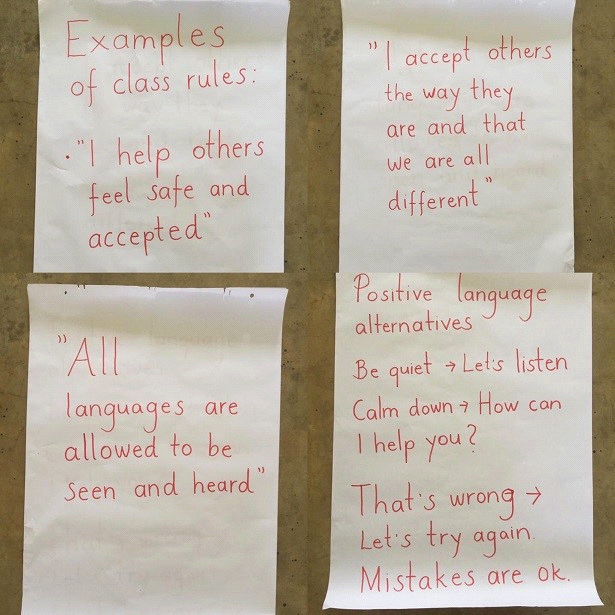 Examples
of class rules:
• "I help others
feel safe and
accepted"
"I accept others
the way they
are and that
we are all
different"
"All
languages are
allowed to be
seen and heard"
Positive language
alternatives
Be quiet → Let's listen
Calm down → How can
I help you?
That's wrong →
Let's try again.
Mistakes are ok.